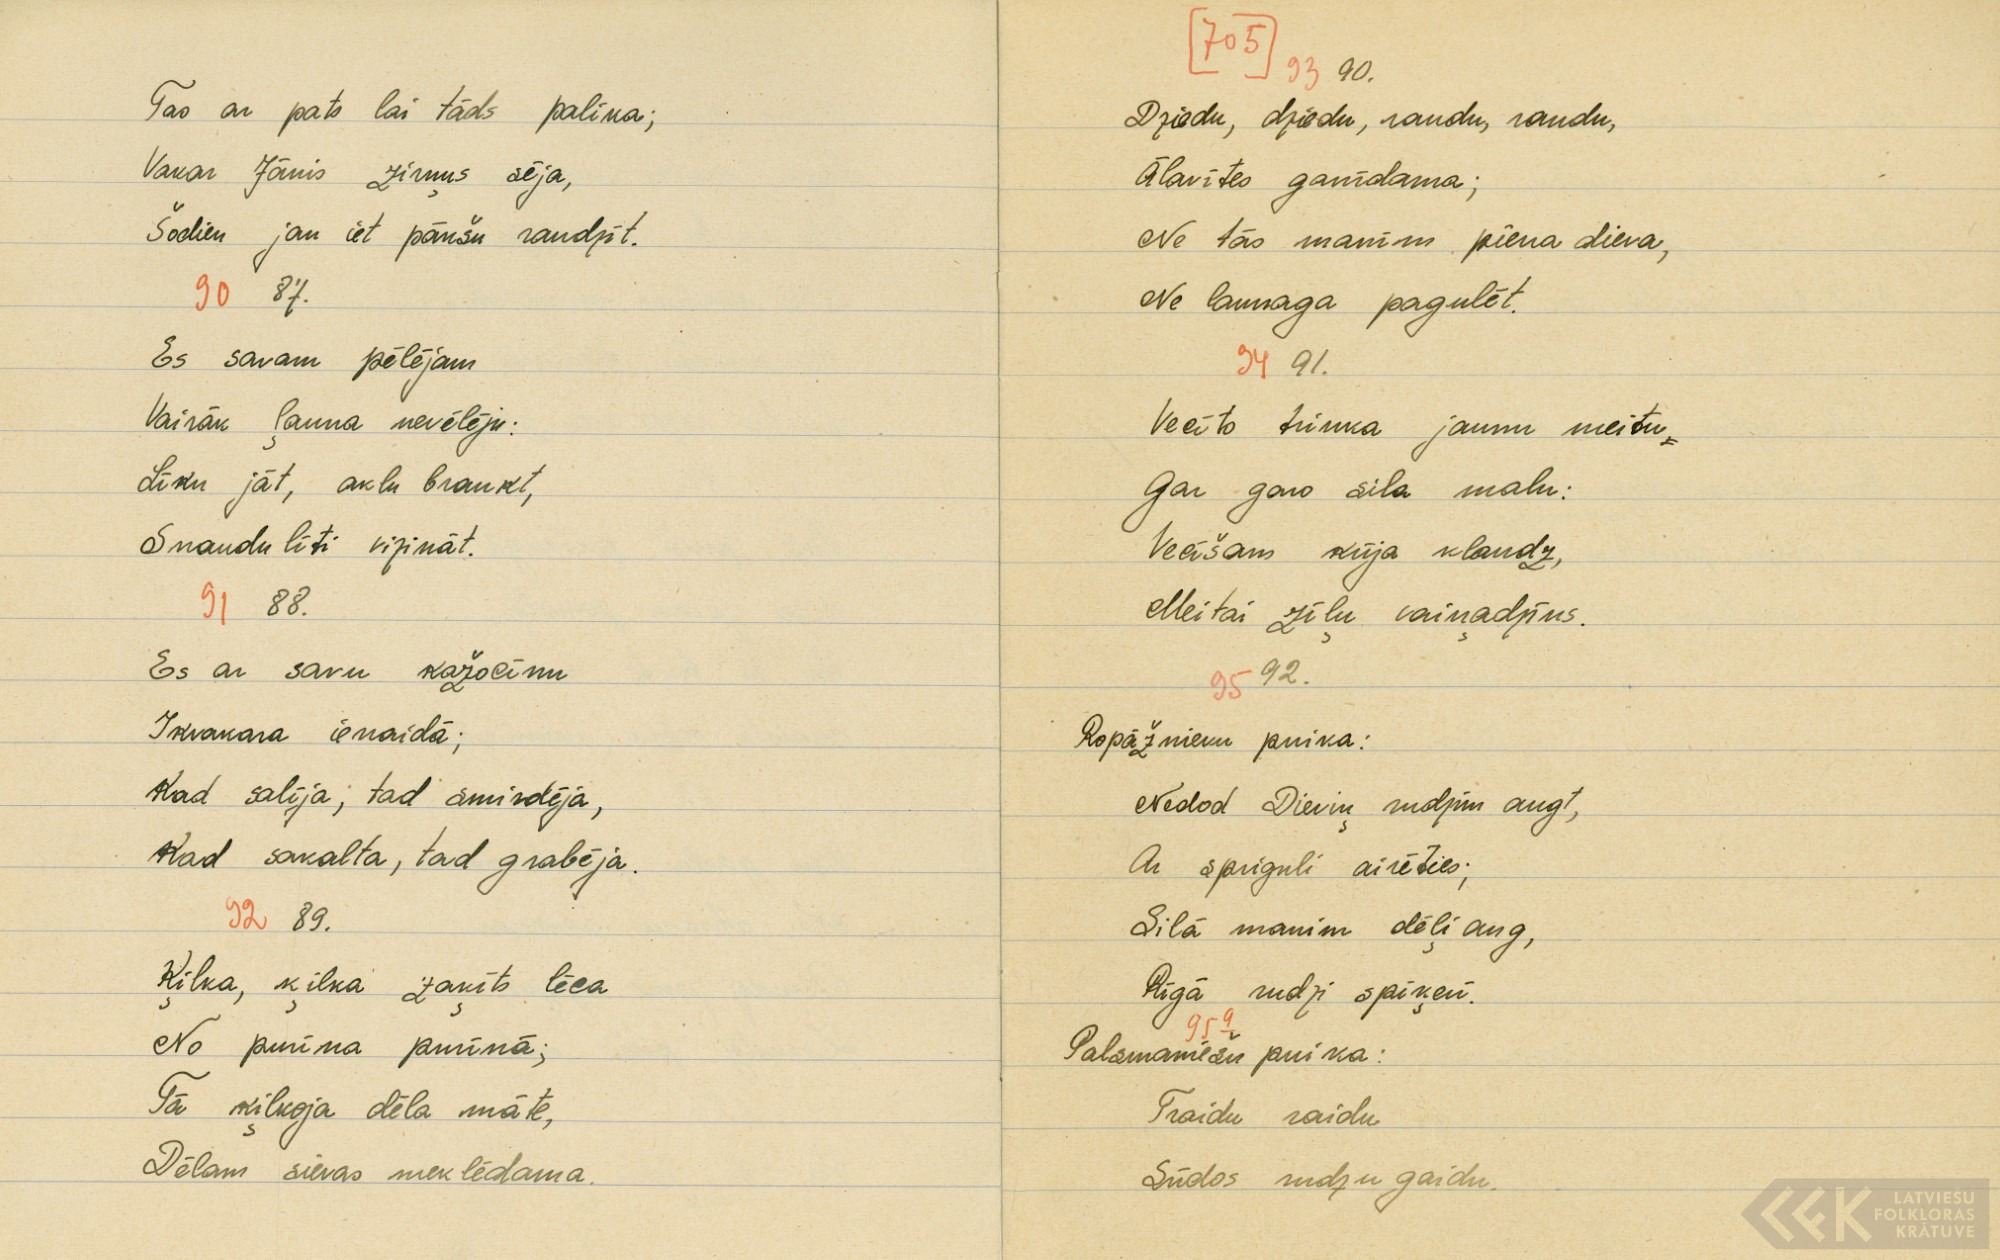 Tas ar pats lai tāds palika;
Vakar Jānis zirņus sēja,
Šodien jau iet pākšu raudzīt.
90 87.
Es savam pēlējam
Vairāk ļauna nevēlēju:
Līku jāt, aklu braukt,
Snaudulīti vizināt.
91 88.
Es ar savu kažocīnu
Ikvakara ienaidā;
Kad salija, tad smirdēja,
Kad sakalta, tad grabēja.
92 89.
Ķilka, ķilka zaķīts lēca
No purīna purīnā;
Tā ķilkoja dēla māte,
Dēlam sievas meklēdama.
[705]
93 90.
Dziedu, dziedu, raudu, raudu,
Ālavītes ganīdama;
Ne tās manim piena deva,
Ne launaga pagulēt.
94 91.
Vecīts trinka jaunu meitu
Gar garo sila malu:
Vecīšam kūja klaudz,
Meitai zīļu vaiņadziņs.
95 92.
Ropāžnieku puika:
Nedod Dieviņ rudzim augt,
Ar spriguli airēties;
Silā manim dēļi aug,
Rīgā rudzi spīķerī.
95a
Palsmaniešu puika:
Traidu raidu
Sūdos rudzu gaidu.
LATVIEŠU
FOLKLORAS
KRĀTUVE